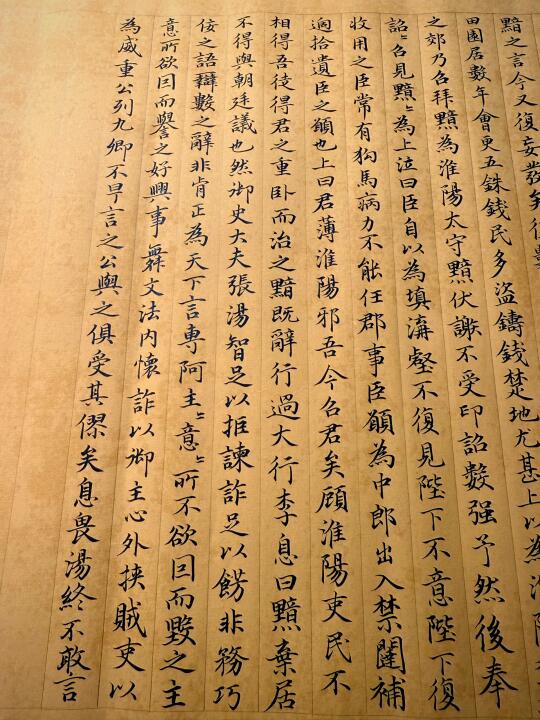 黯之言今又復妄發矣後
田園居數年會更五銖錢民多盜鑄錢楚地尤甚上以為淮陽
之郊乃召拜黯為淮陽太守黯伏謝不受印詔數强予然後奉
詔〻召見黯〻為上泣曰臣自以為填溝壑不復見陛下不意陛下復
收用之臣常有狗馬病力不能任郡事臣願為中郎出入禁闥補
過拾遺臣之願也上曰君薄淮陽邪吾今召君矣顧淮陽吏民不
相得吾徒得君之重卧而治之黯既辭行過大行李息曰黯棄居
不得與朝廷議也然御史大夫張湯智足以拒諫詐足以飾非務巧
佞之語辯數之辭非肯正為天下言專阿主〻意〻所不欲因而毀之主
意所欲因而譽之好興事舞文法内懷詐以御主心外挾賊吏以
為威重公列九卿不早言之公與之俱受其僇矣息畏湯終不敢言